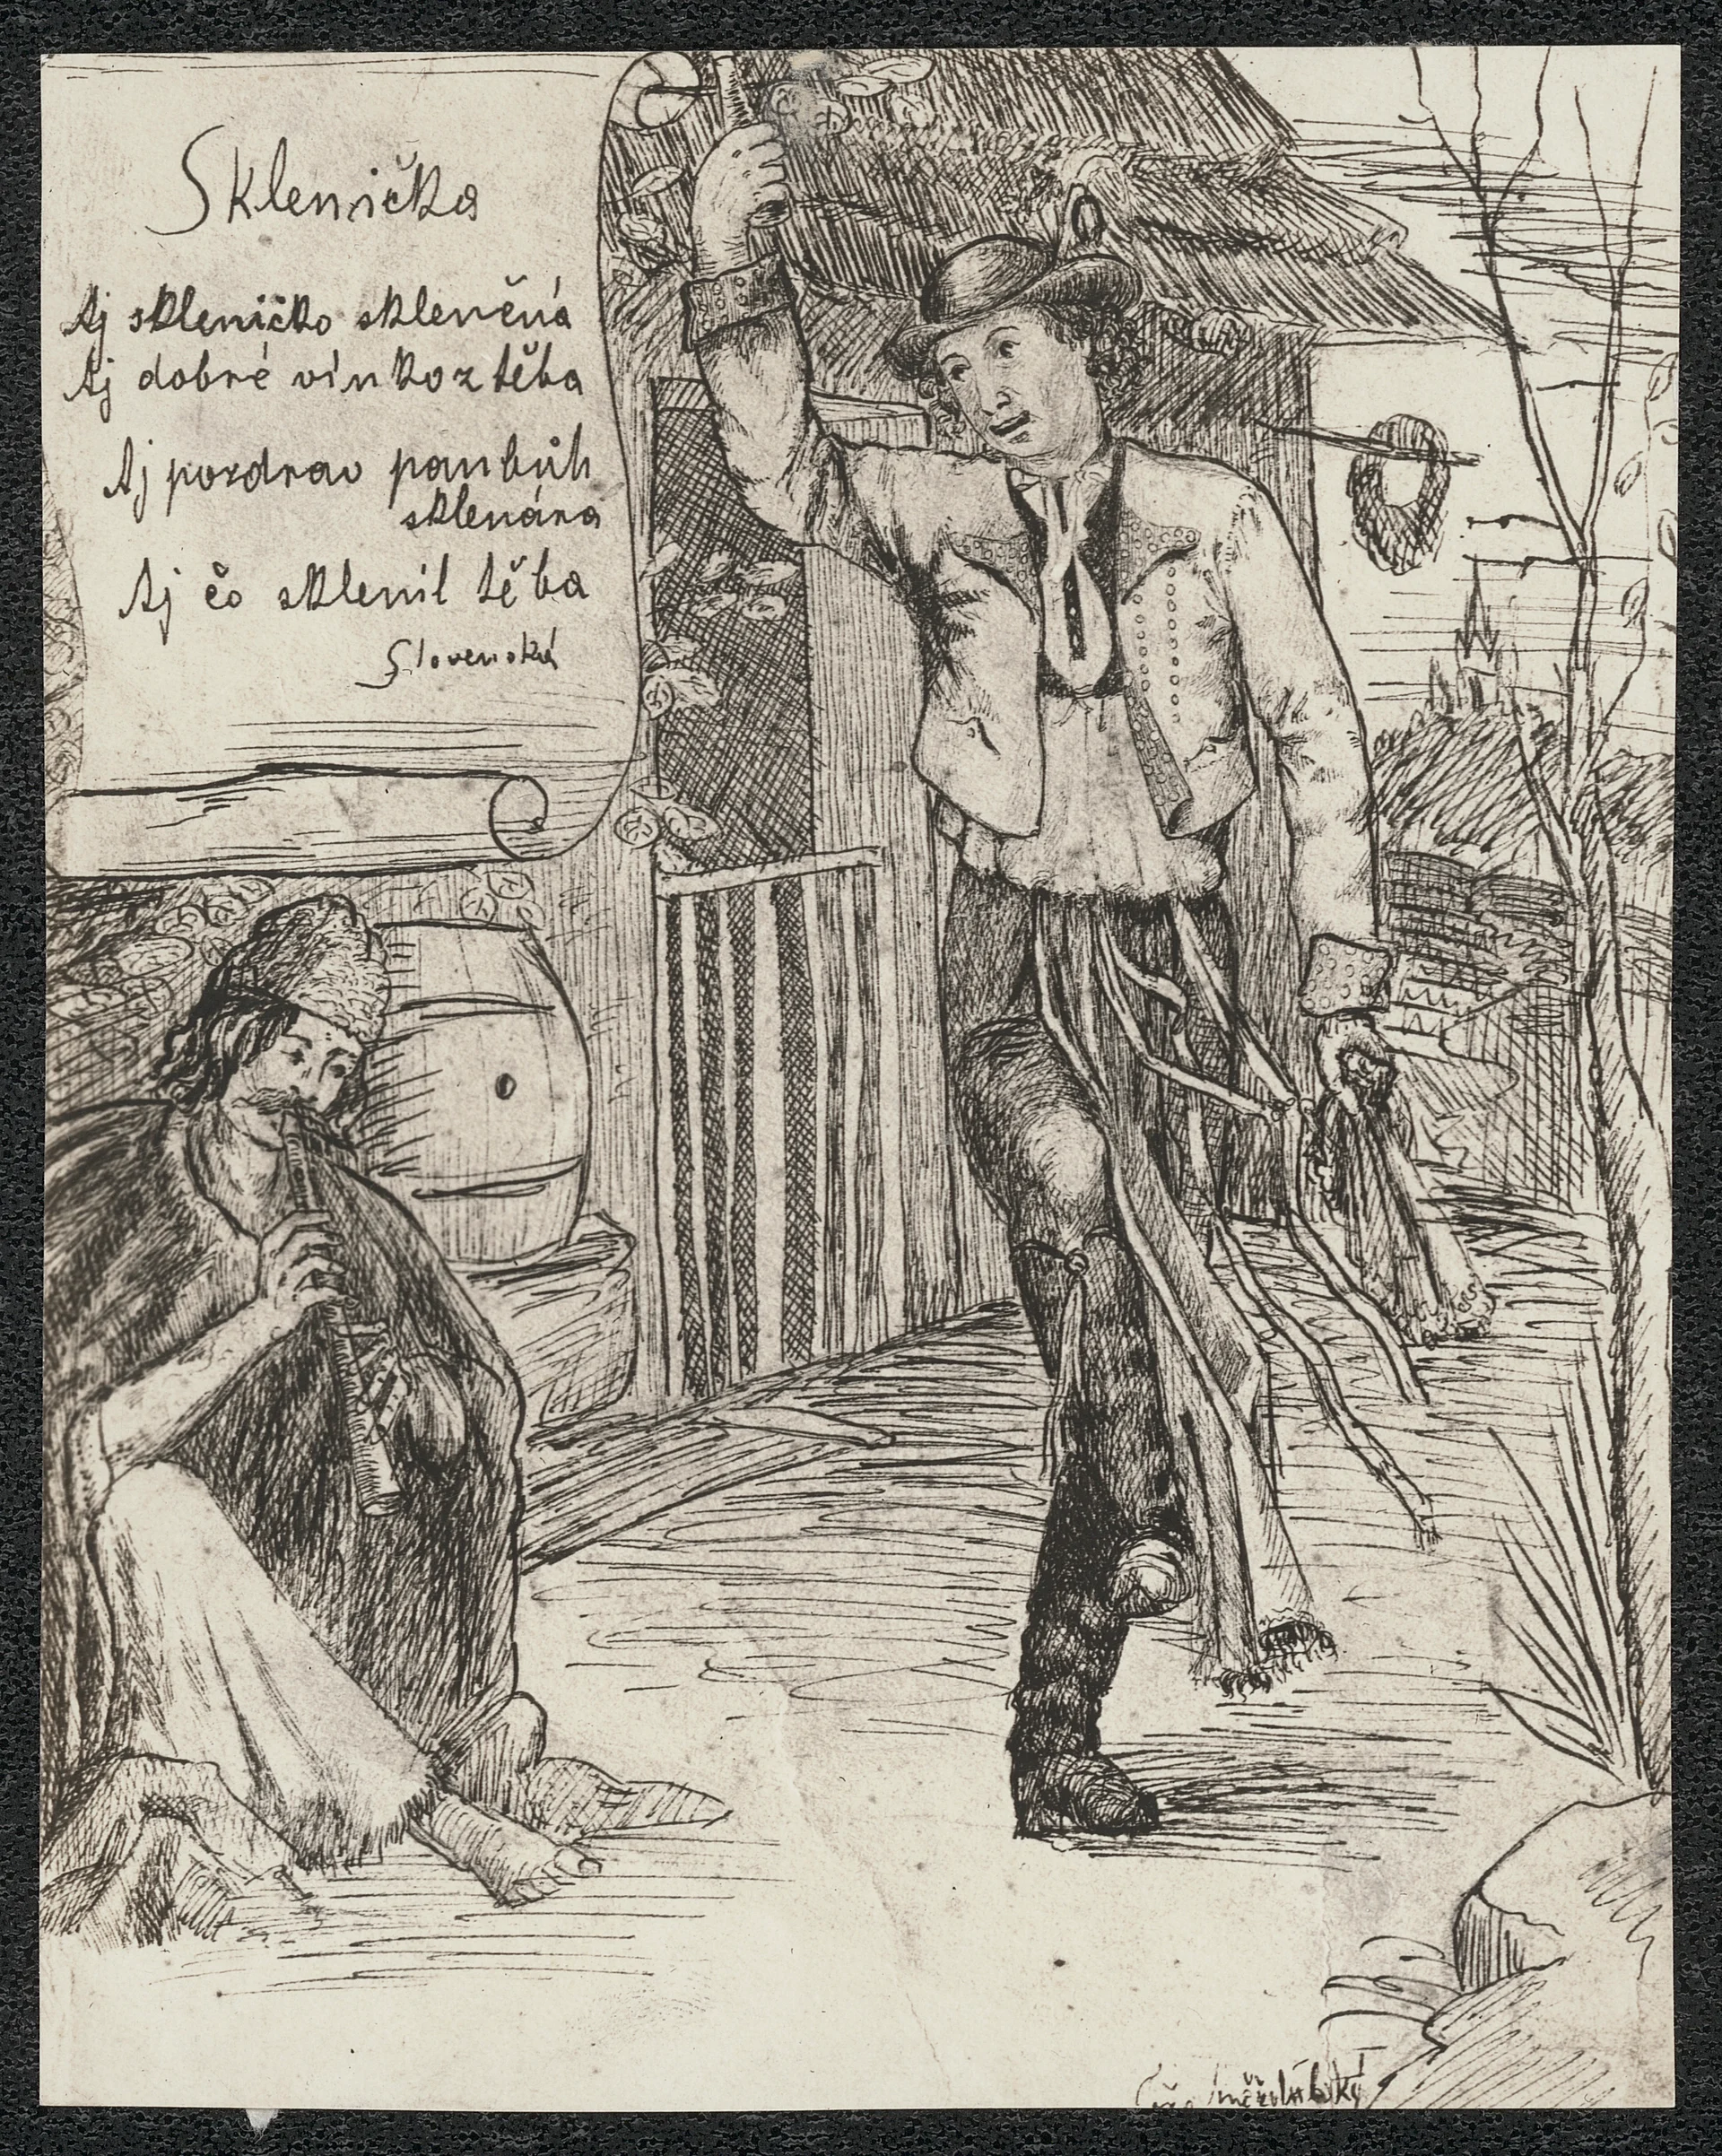 Sklenička
Aj skleničko sklenčná
Aj dobré vínko z těba
Aj pozdrav panbůh
sklenára
Aj čo sklenil těba
Slovenská